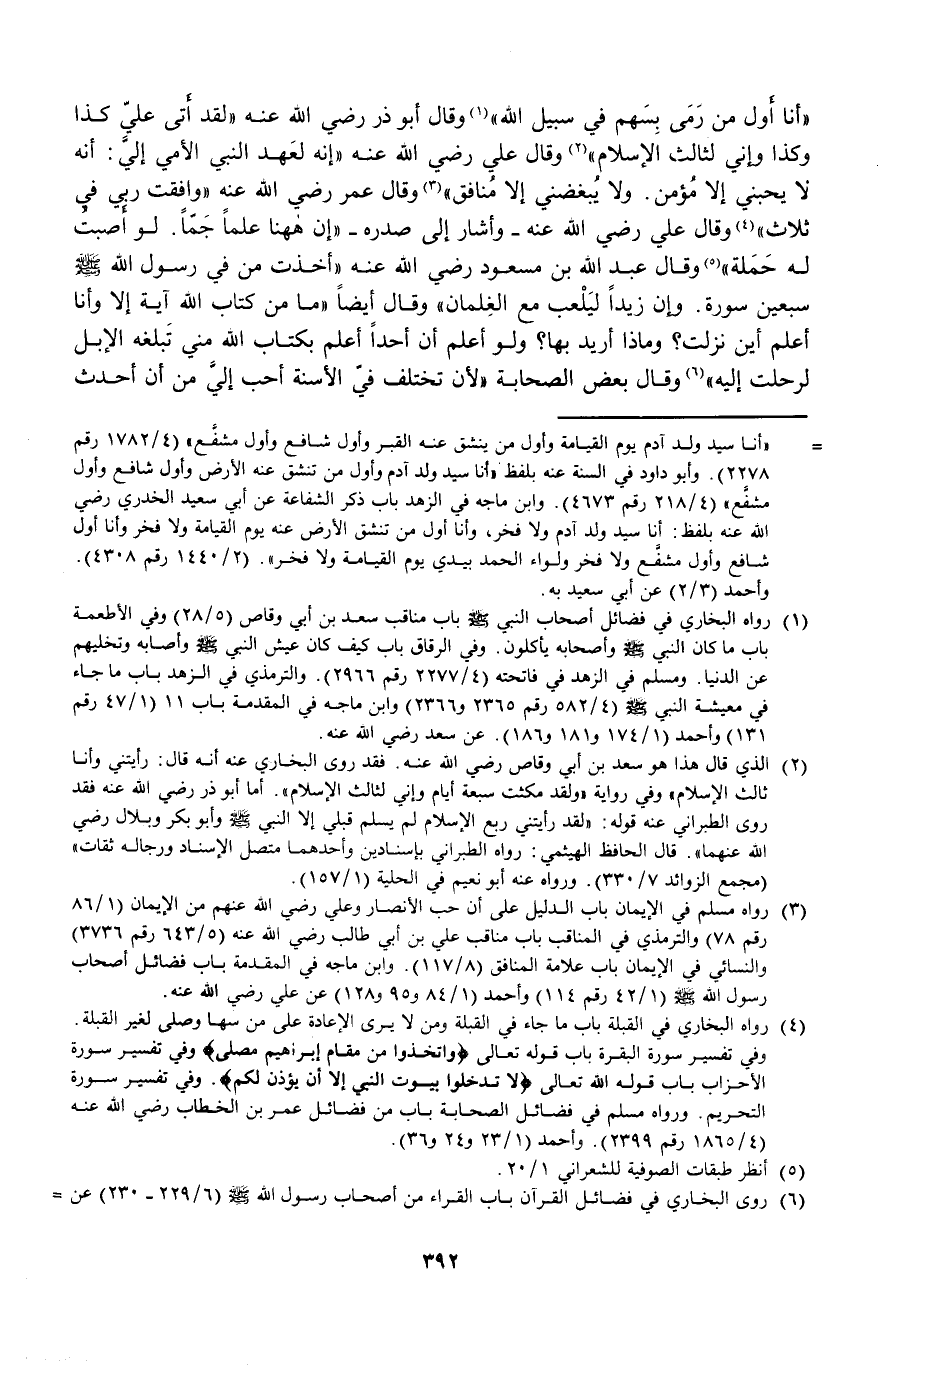 «أنا أَول من رَمَى بِسَهم في سبيل الله»(١) وقال أبو ذر رضي الله عنه «لقد أَتى عليّ كذا
وكذا وإني لثالث الإسلام»(٢) وقال علي رضي الله عنه «إنه لعَهد النبي الأمي إليَّ: أنه
لا يحبني إلا مُؤمن. ولا يُبغضني إلا مُنافق»(٣) وقال عمر رضي الله عنه «وافقت ربي في
ثلاث»(٤) وقال علي رضي الله عنه ـ وأشار إلى صدره ـ «إن هٰهنا علماً جَمّاً. لو أَصبتُ
له حَمَلة»(٥) وقال عبد الله بن مسعود رضي الله عنه «أخذت من في رسول الله ﷺ
سبعين سورة. وإن زيداً ليَلْعب مع الغِلمان» وقال أيضاً «ما من كتاب الله آية إلا وأنا
أعلم أين نزلت؟ وماذا أريد بها؟ ولو أعلم أن أحداً أعلم بكتاب الله مني تَبلغه الإبل
لرحلت إليه»(٦) وقال بعض الصحابة «لأن تختلف فيّ الأسنة أحب إليَّ من أن أحدث
= «أنا سيد ولد آدم يوم القيامة وأول من ينشق عنه القبر وأول شافع وأول مشفَّع» (١٧٨٢/٤ رقم
٢٢٧٨). وأبو داود في السنة عنه بلفظ «أنا سيد ولد آدم وأول من تنشق عنه الأرض وأول شافع وأول
مشفَّع» (٢١٨/٤ رقم ٤٦٧٣). وابن ماجه في الزهد باب ذكر الشفاعة عن أبي سعيد الخدري رضي
الله عنه بلفظ: أنا سيد ولد آدم ولا فخر، وأنا أول من تنشق الأرض عنه يوم القيامة ولا فخر وأنا أول
شافع وأول مشفَّع ولا فخر ولواء الحمد بيدي يوم القيامة ولا فخر». (١٤٤٠/٢ رقم ٤٣٠٨).
وأحمد (٢/٣) عن أبي سعيد به.
(١) رواه البخاري في فضائل أصحاب النبي ﷺ باب مناقب سعد بن أبي وقاص (٢٨/٥) وفي الأطعمة
باب ما كان النبي ﷺ وأصحابه يأكلون. وفي الرقاق باب كيف كان عيش النبي ﷺ وأصابه وتخليهم
عن الدنيا. ومسلم في الزهد في فاتحته (٢٢٧٧/٤ رقم ٢٩٦٦). والترمذي في الزهد باب ما جاء
في معيشة النبي ﷺ (٥٨٢/٤ رقم ٢٣٦٥ و٢٣٦٦) وابن ماجه في المقدمة باب ١١ (٤٧/١ رقم
١٣١) وأحمد (١٧٤/١ و١٨١ و١٨٦). عن سعد رضي الله عنه.
(٢) الذي قال هذا هو سعد بن أبي وقاص رضي الله عنه. فقد روى البخاري عنه أنه قال: رأيتني وأنا
ثالث الإسلام» وفي رواية «ولقد مكثت سبعة أيام وإني لثالث الإسلام». أما أبو ذر رضي الله عنه فقد
روى الطبراني عنه قوله: «لقد رأيتني ربع الإسلام لم يسلم قبلي إلا النبي ﷺ وأبو بكر وبلال رضي
الله عنهما». قال الحافظ الهيثمي: رواه الطبراني بإسنادين وأحدهما متصل الإسناد ورجاله ثقات»
(مجمع الزوائد ٣٣٠/٧). ورواه عنه أبو نعيم في الحلية (١٥٧/١).
(٣) رواه مسلم في الإيمان باب الدليل على أن حب الأنصار وعلي رضي الله عنهم من الإيمان (٨٦/١
رقم ٧٨) والترمذي في المناقب باب مناقب علي بن أبي طالب رضي الله عنه (٦٤٣/٥ رقم ٣٧٣٦)
والنسائي في الإيمان باب علامة المنافق (١١٧/٨). وابن ماجه في المقدمة باب فضائل أصحاب
رسول الله ﷺ (٤٢/١ رقم ١١٤) وأحمد (٨٤/١ و٩٥ و١٢٨) عن علي رضي الله عنه.
(٤) رواه البخاري في القبلة باب ما جاء في القبلة ومن لا يرى الإعادة على من سها وصلى لغير القبلة.
وفي تفسير سورة البقرة باب قوله تعالى ﴿واتخذوا من مقام إبراهيم مصلى﴾ وفي تفسير سورة
الأحزاب باب قوله الله تعالى ﴿لا تدخلوا بيوت النبي إلا أن يؤذن لكم﴾. وفي تفسير سورة
التحريم. ورواه مسلم في فضائل الصحابة باب من فضائل عمر بن الخطاب رضي الله عنه
(١٨٦٥/٤ رقم ٢٣٩٩). وأحمد (٢٣/١ و٢٤ و٣٦).
(٥) أنظر طبقات الصوفية للشعراني ٢٠/١.
(٦) روى البخاري في فضائل القرآن باب القراء من أصحاب رسول الله ﷺ (٢٢٩/٦ ـ ٢٣٠) عن =
٣٩٢